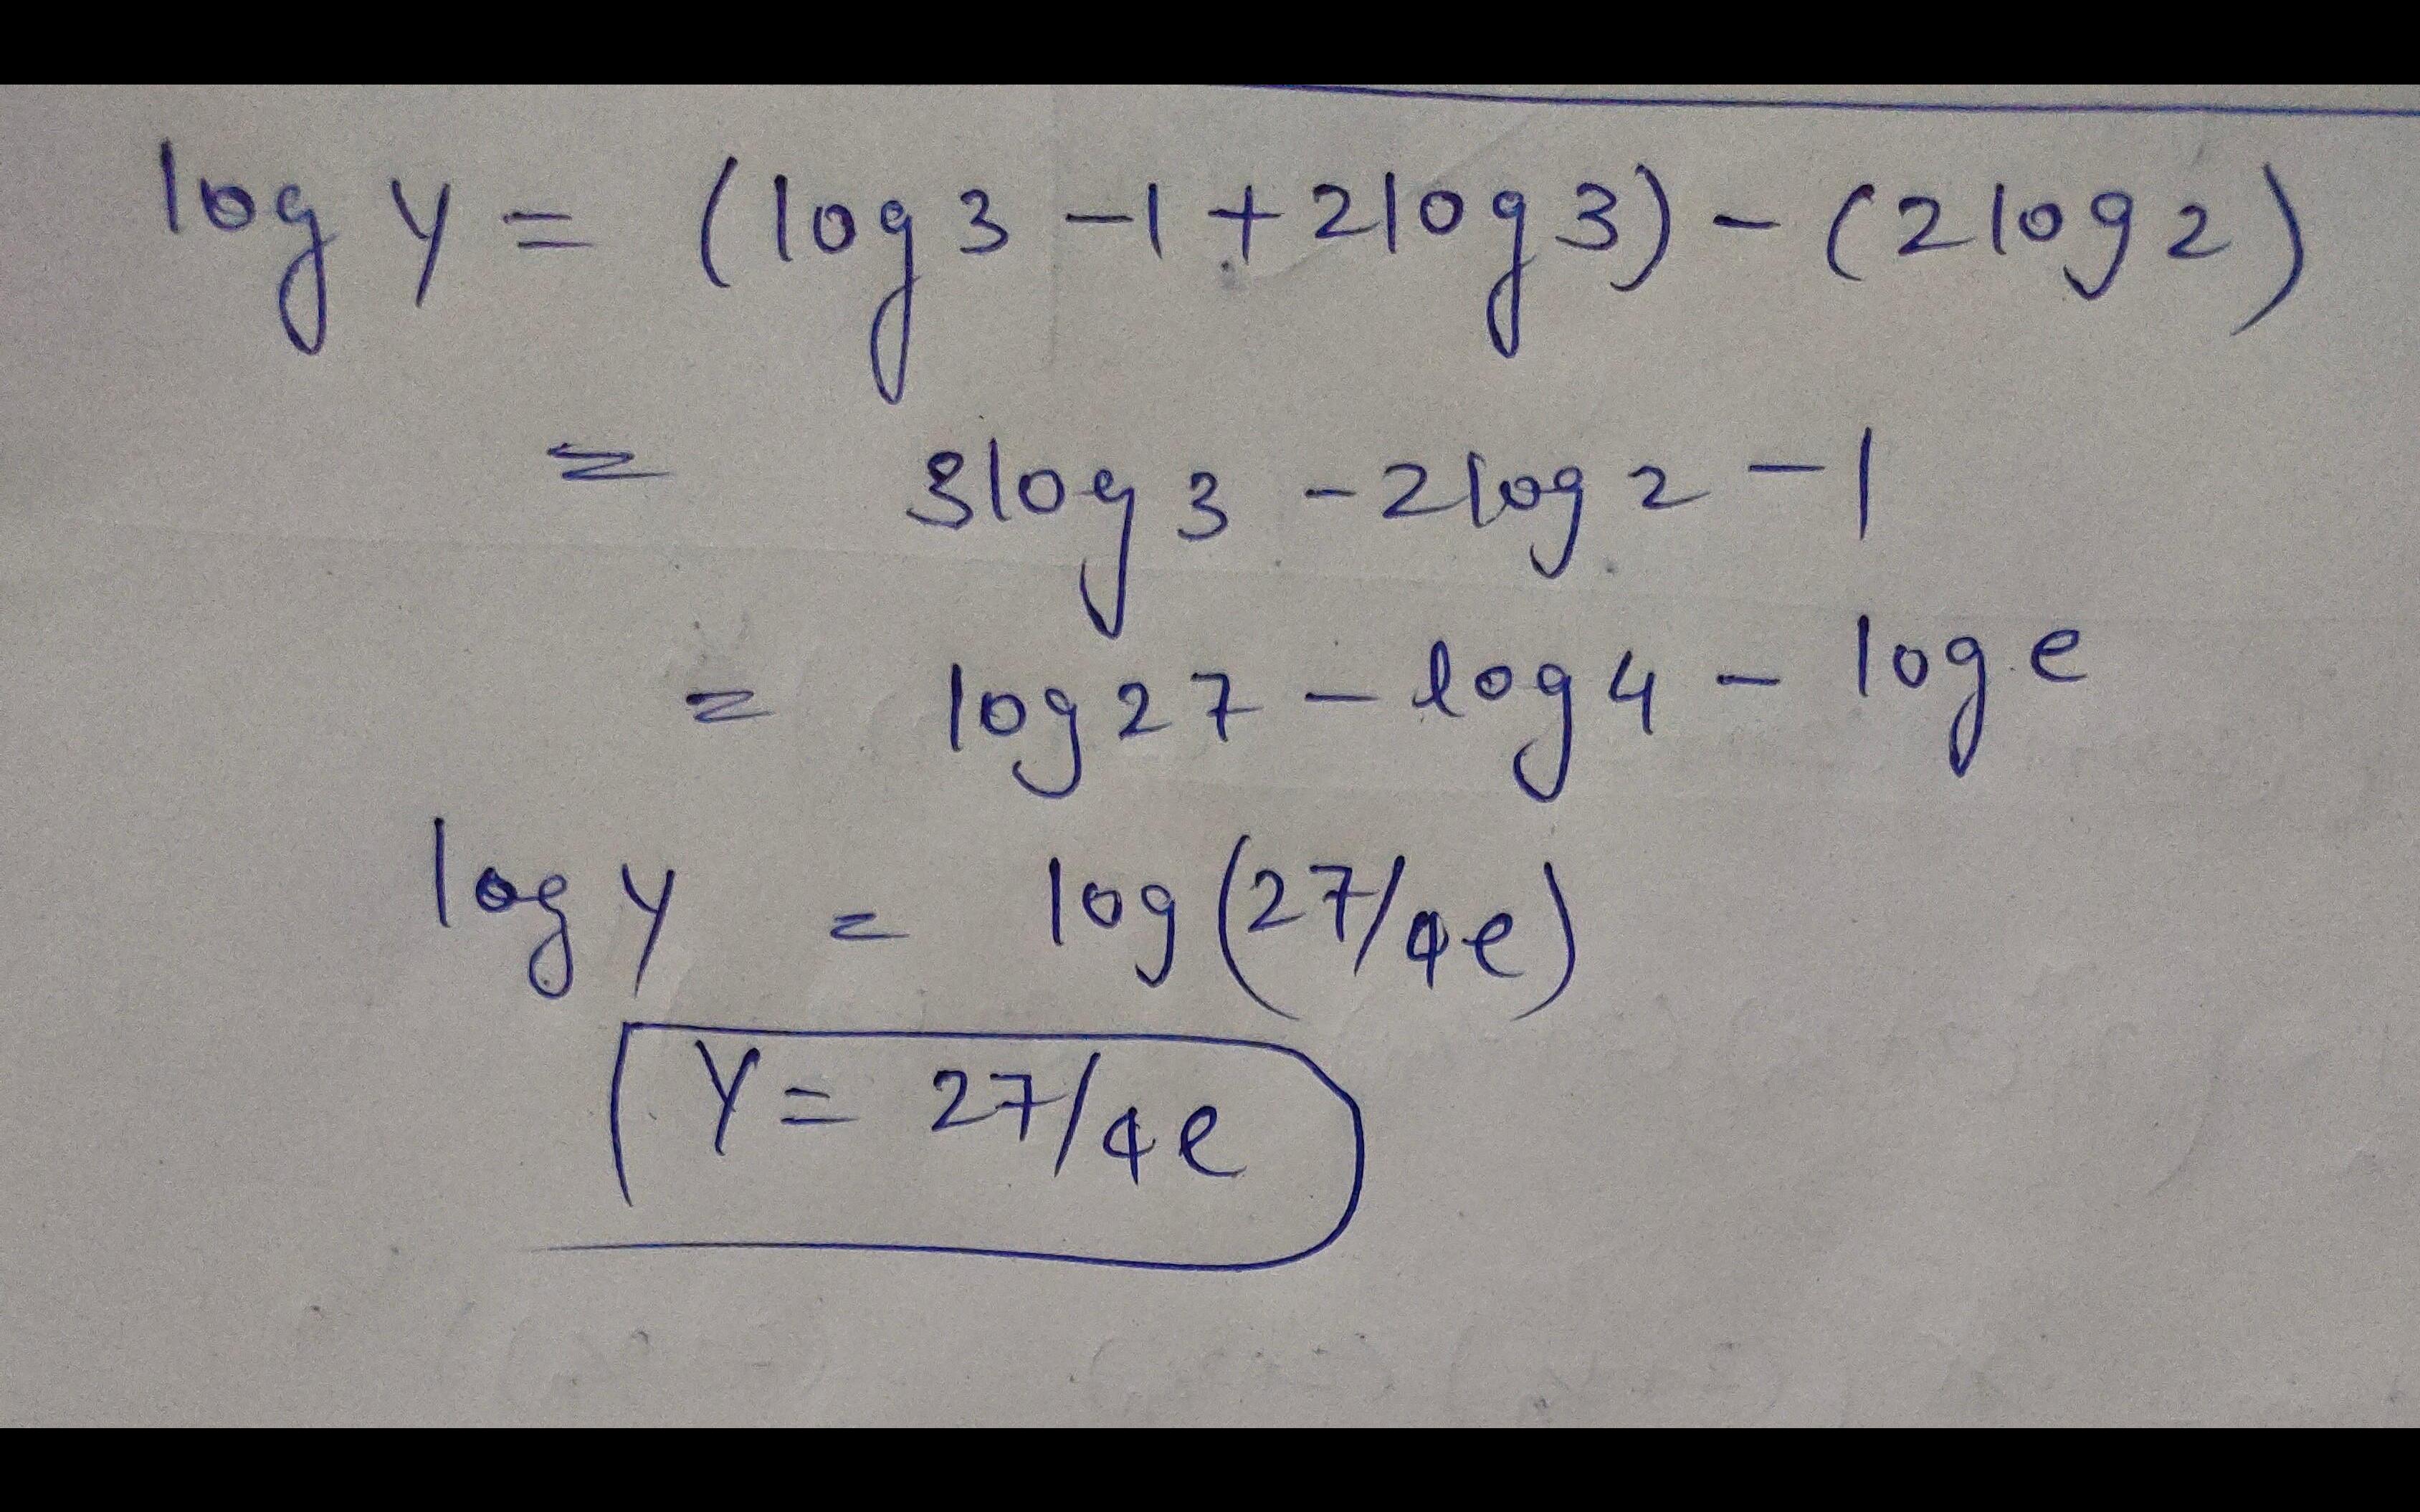 log y = (log 3 - 1 + 2 log 3) - (2 log 2)
= 3 log 3 - 2 log 2 - 1
= log 27 - log 4 - log e
log y = log (27/4e)
y = 27/4e